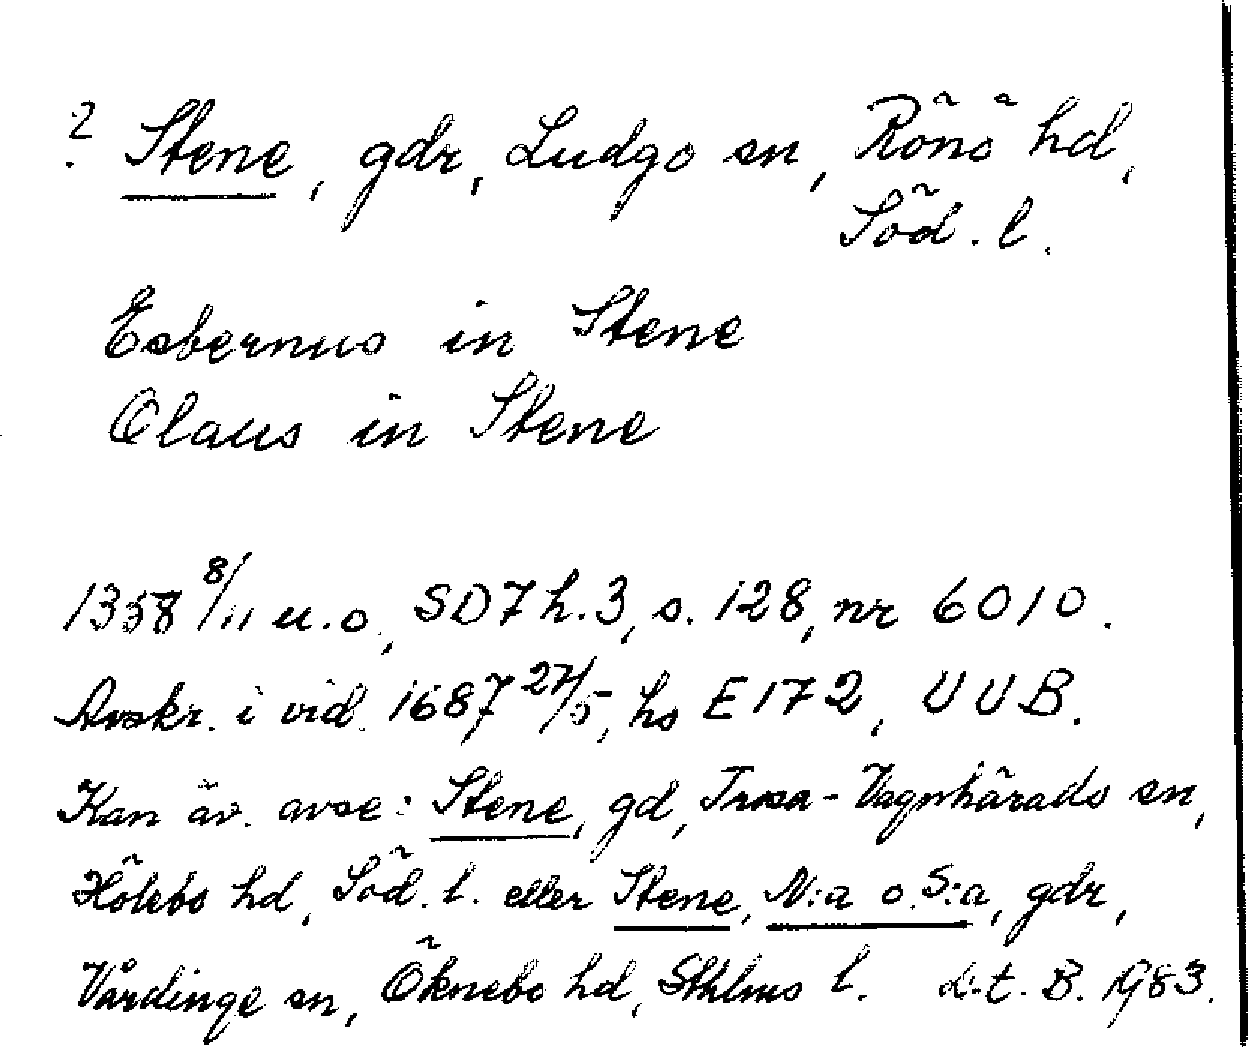 ? Stene, gdr, Ludgo sn, Rönö hd,
Söd. l.
Esbernus in Stene
Olaus in Stene
1358 8/11 u.o., SD7 h.3, s. 128, nr 6010.
Avskr. i vid. 1687 27/5, hs E172, UUB.
Kan äv. avse: Stene, gd, Trosa-Vagnhärads sn,
Hölebo hd, Söd. l. eller Stene, N:a o. S:a, gdr,
Vårdinge sn, Öknebo hd, Sthlms l. L-t. B. 1983.